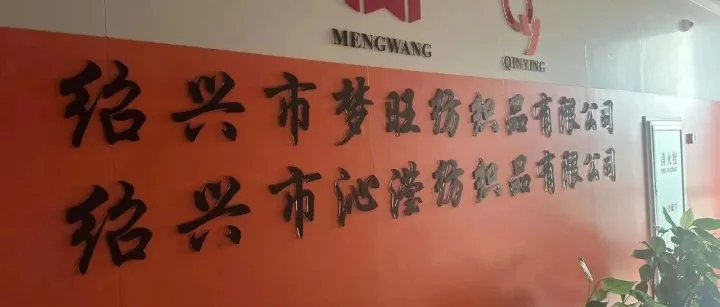 MENGWANG
QINYING
绍兴市梦旺纺织品有限公司
绍兴市沁滢纺织品有限公司
消火栓